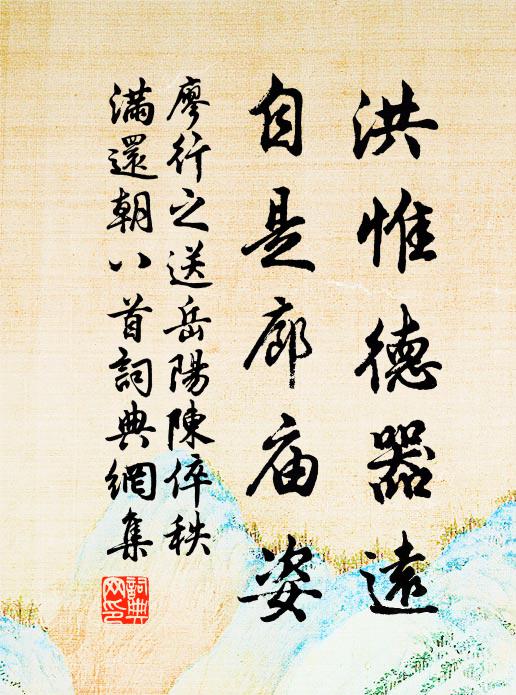 洪惟德器遠
自是廊庙姿
廖行之送岳陽陳倅秩
滿還朝八首詞典網集
詞典
网印